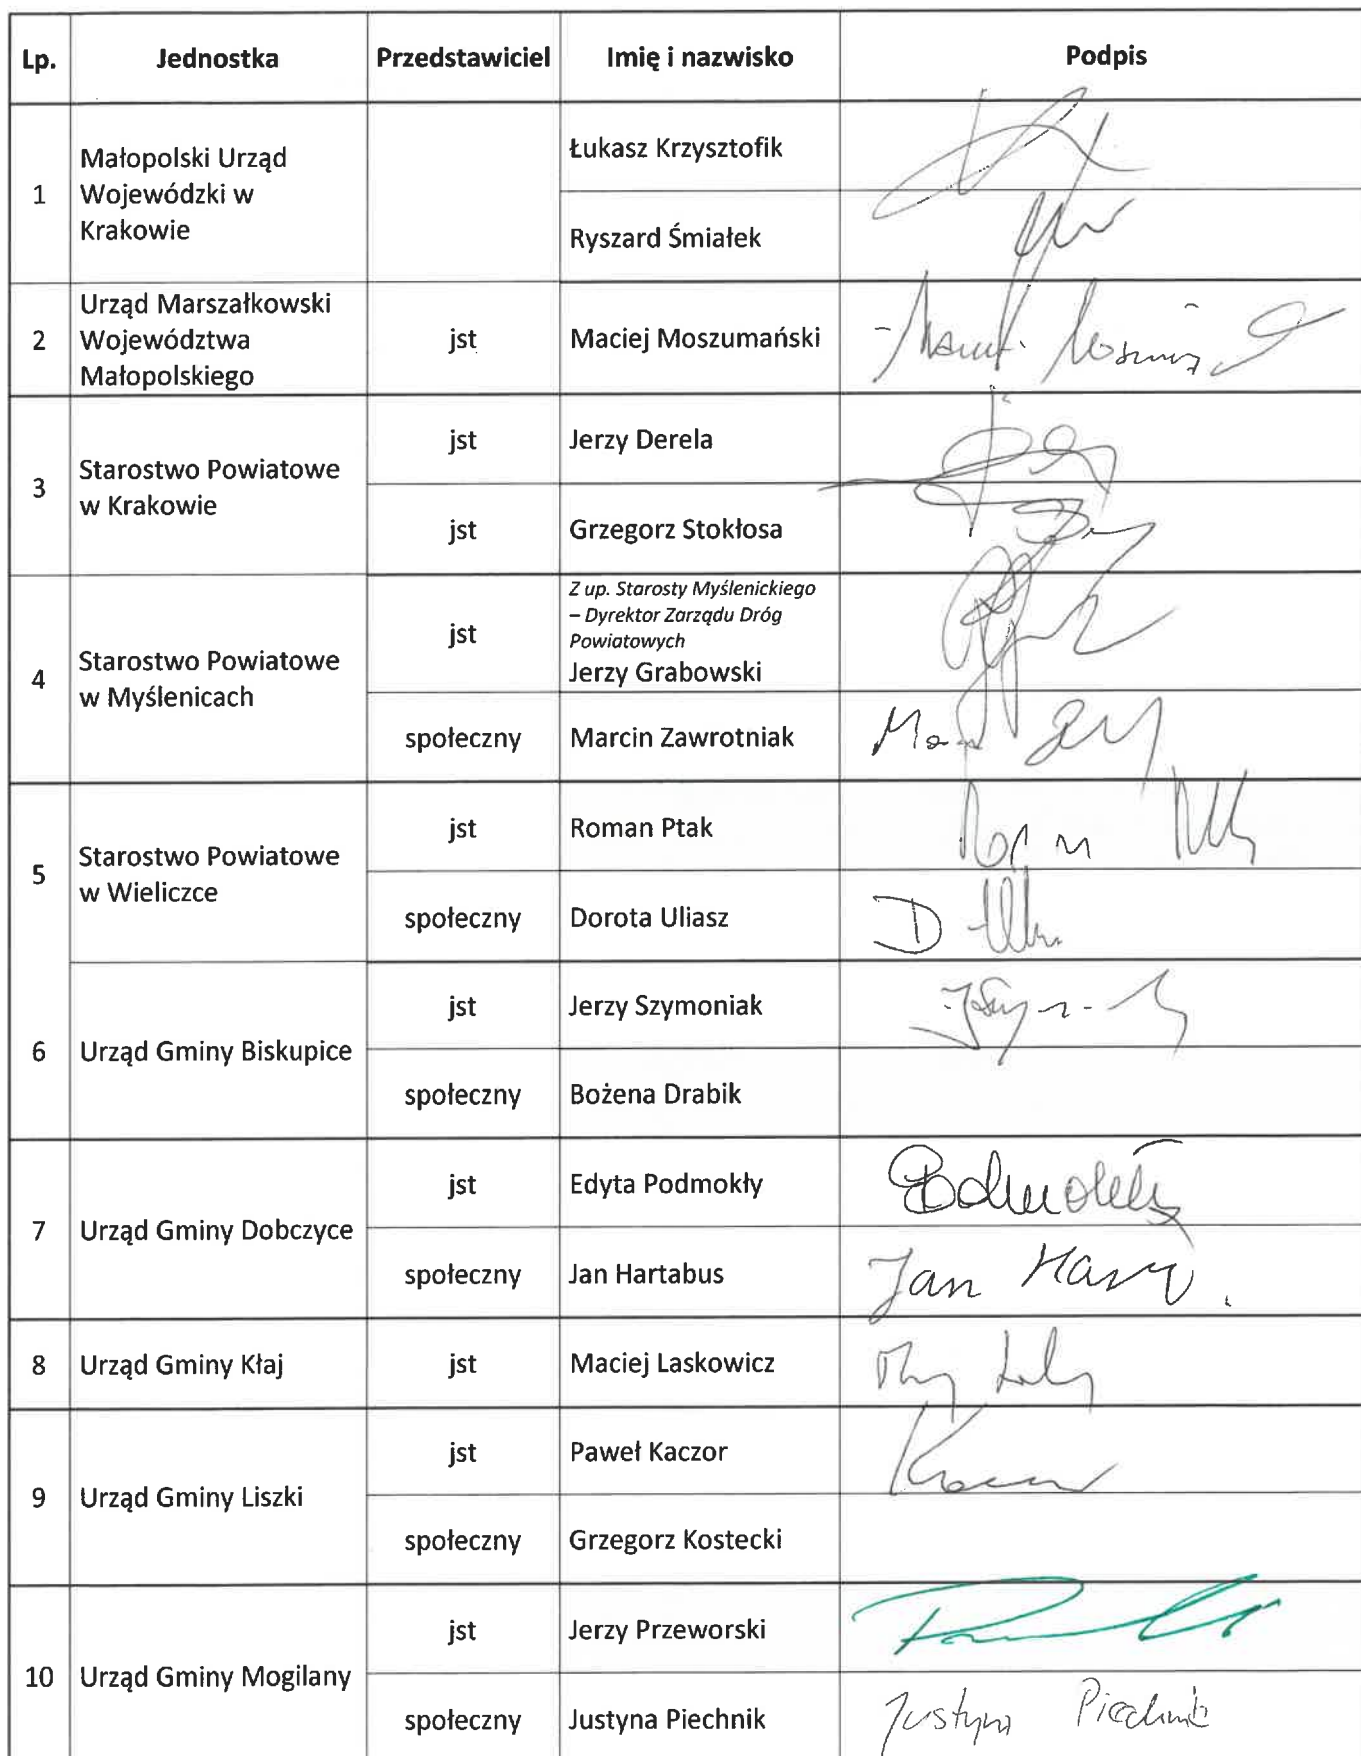 Lp. Jednostka Przedstawiciel Imię i nazwisko Podpis
1
Małopolski Urząd
Wojewódzki w
Krakowie
Łukasz Krzysztofik
Ryszard Śmiałek
2
Urząd Marszałkowski
Województwa
Małopolskiego
jst
Maciej Moszumański
3
Starostwo Powiatowe
w Krakowie
jst
Jerzy Derela
jst
Grzegorz Stokłosa
4
Starostwo Powiatowe
w Myślenicach
jst
Z up. Starosty Myślenickiego
– Dyrektor Zarządu Dróg
Powiatowych
Jerzy Grabowski
społeczny
Marcin Zawrotniak
5
Starostwo Powiatowe
w Wieliczce
jst
Roman Ptak
społeczny
Dorota Uliasz
6
Urząd Gminy Biskupice
jst
Jerzy Szymoniak
społeczny
Bożena Drabik
7
Urząd Gminy Dobczyce
jst
Edyta Podmokły
społeczny
Jan Hartabus
Jan
8
Urząd Gminy Kłaj
jst
Maciej Laskowicz
9
Urząd Gminy Liszki
jst
Paweł Kaczor
społeczny
Grzegorz Kostecki
10
Urząd Gminy Mogilany
jst
Jerzy Przeworski
społeczny
Justyna Piechnik
Justyna Piechnik